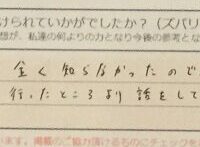 けられていかがでしたか？（ズバリ
想が、私達の何よりの力となり今後の参考とな
全く知らなかったので
行ったところより話をして
います。掲載のご協力頂ける方のにチェックを